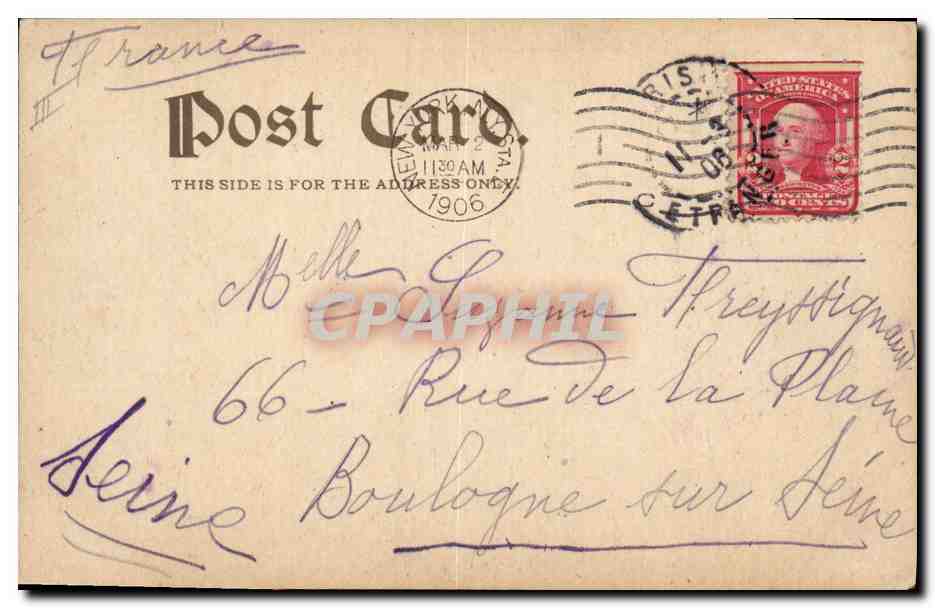 France
III
Post Card.
THIS SIDE IS FOR THE ADDRESS ONLY.
NEW YORK, N.Y. STA.
MAR 2
11 30 AM
1906
UNITED STATES
OF AMERICA
POSTAGE
TWO CENTS
ETRANGER
Melle Suzanne Freyssignaud
CPAPHIL
66 - Rue de la Plaine
Boulogne sur Seine
Seine